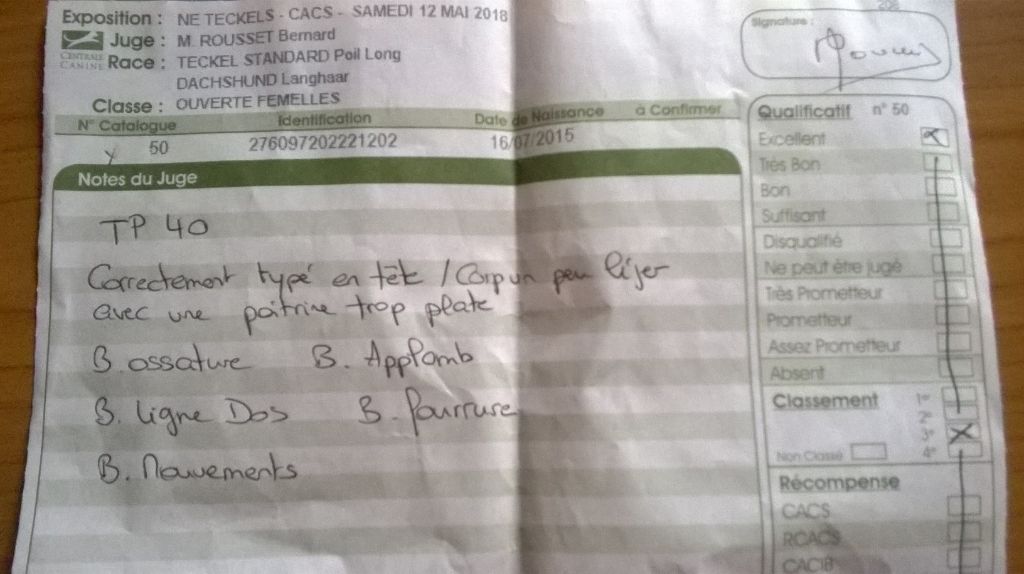 208
Exposition : NE TECKELS - CACS - SAMEDI 12 MAI 2018
Juge : M. ROUSSET Bernard
CENTRALE CANINE
Race : TECKEL STANDARD Poil Long
DACHSHUND Langhaar
Classe : OUVERTE FEMELLES
Signature :
N° Catalogue Identification Date de Naissance à Confirmer
50 276097202221202 16/07/2015
Notes du Juge
TP 40
Correctement typé en tête / Corp un peu léjer
avec une poitrine trop plate
B. ossature B. Applomb
B. ligne Dos B. fourrure
B. Mouvements
Qualificatif n° 50
Excellent X
Très Bon
Bon
Suffisant
Disqualifié
Ne peut être jugé
Très Prometteur
Prometteur
Assez Prometteur
Absent
Classement 1er
2e
3e X
Non Classé 4e
Récompense
CACS
RCACS
CACIB